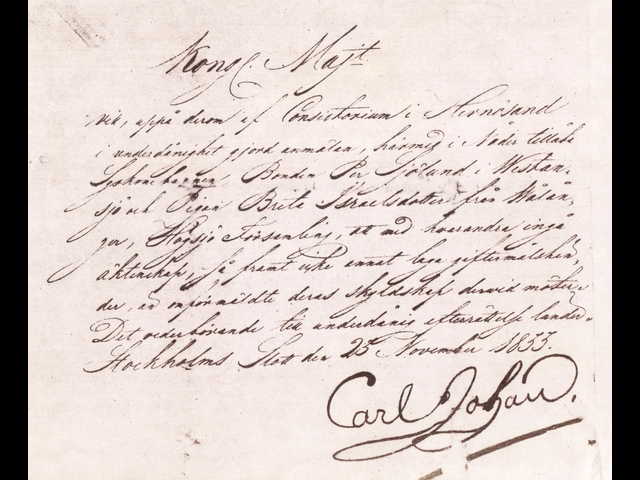 Kongl. Majt
vil, uppå derom af Consistorium i Hernösand
i underdånighet gjord anmälan, härmed i Nåder tillåta
Syskonebarnen Bonden Per Sjölund i Westan-
sjö och Pigan Brita Israelsdotter från Wålån-
ger, Högsjö Församling, at med hvarandra ingå
äktenskap, så framt icke annat laga giftermålshin-
der, än omförmäldte deras skyldskap dervid möter
Det vederbörande till underdånig efterrättelse länder.
Stockholms Slott den 25 November 1833.
Carl Johan.